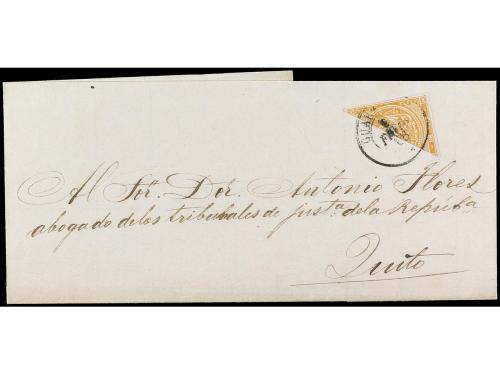 GUAY
Al Sor. Dor. Antonio Flores
abogado delos tribubales de justa. dela Repúba
Quito